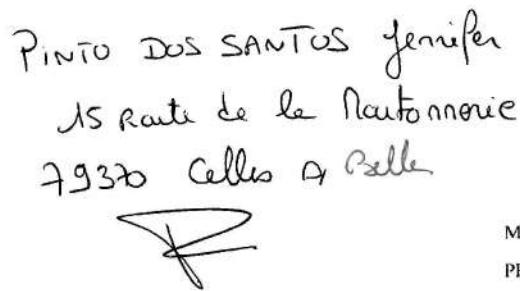 PINTO DOS SANTOS Jennifer
15 Route de la Moutonnerie
79370 Celles A Belle
M
PI